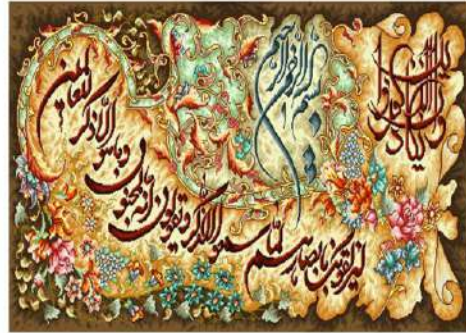 بسم الله الرحمن الرحیم
وان یکاد الذین کفروا
لیزلقونک بابصارهم لما سمعوا الذکر و یقولون انه لمجنون
و ما هو الا ذکر للعالمین